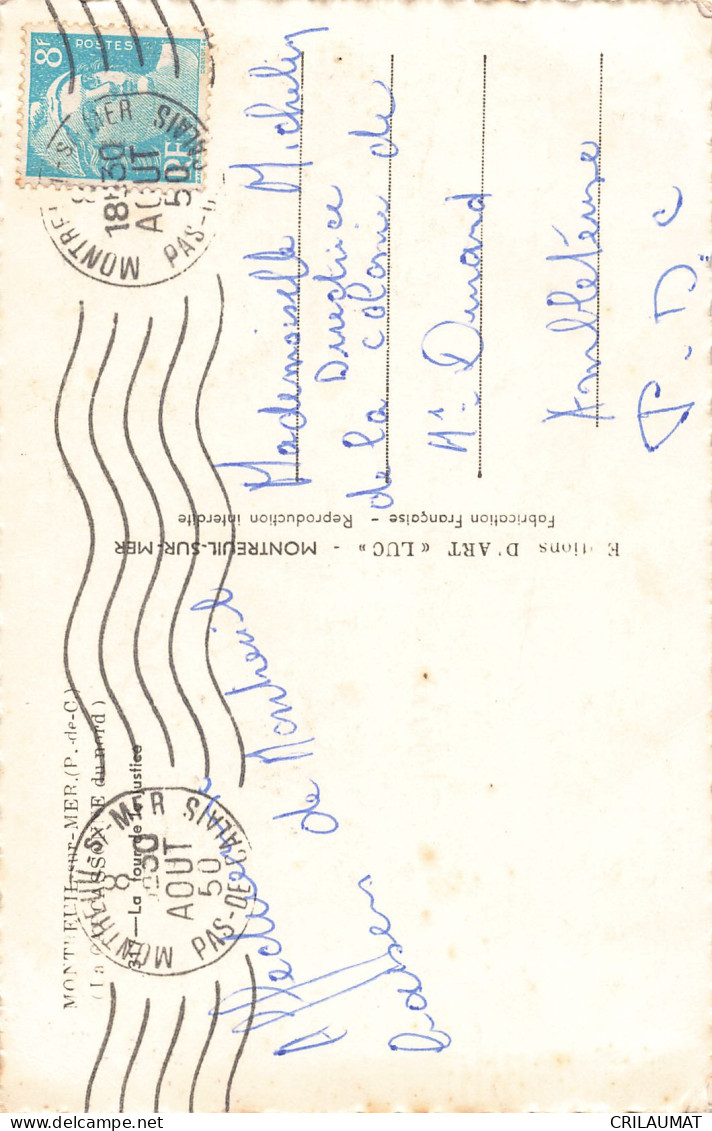 MONTREUIL-sur-MER.(P.-de-C.)
(La CARCASSONNE du nord)
— La tour de la justice
de Montreuil
Editions D'ART «LUC» - MONTREUIL-SUR-MER
Fabrication Française - Reproduction interdite
8F
POSTES
RF
MONTREUIL-S-MER
8
18H30
AOUT
50
PAS-DE-CALAIS
MONTREUIL-S-MER
8
1830
AOUT
50
PAS-DE-CALAIS
Mademoiselle Michelin
Directrice
de la colonie de
Mr Durard
Ambleteuse
P.D.C
CRILAUMAT